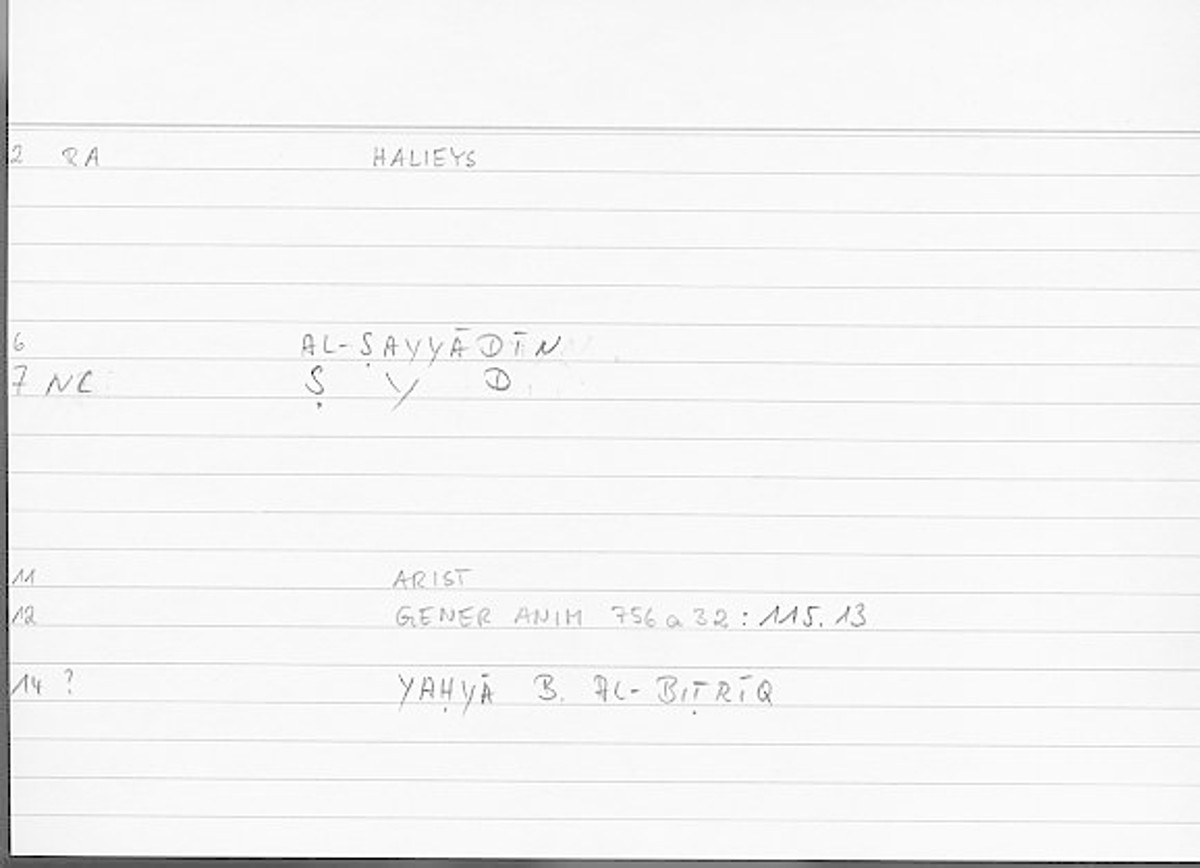 2 RA HALIEYS
6 AL-ṢAYYĀDĪN
7 NC Ṣ Y D
11 ARIST
12 GENER ANIM 756 a 32 : 115. 13
14 ? YAḤYĀ B. AL-BIṬRĪQ